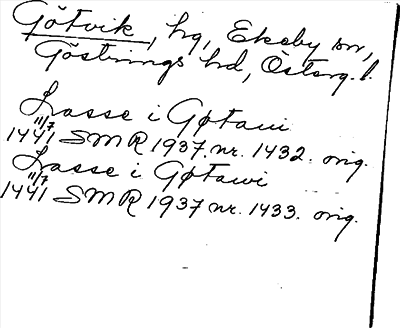 Götvik, hg, Ekeby sn,
Göstrings hd, Österg. l.
Lasse i Gøtawi
11/7
1441 SMR 1937. nr. 1432. orig.
Lasse i Gøtawi
11/7
1441 SMR 1937 nr. 1433. orig.